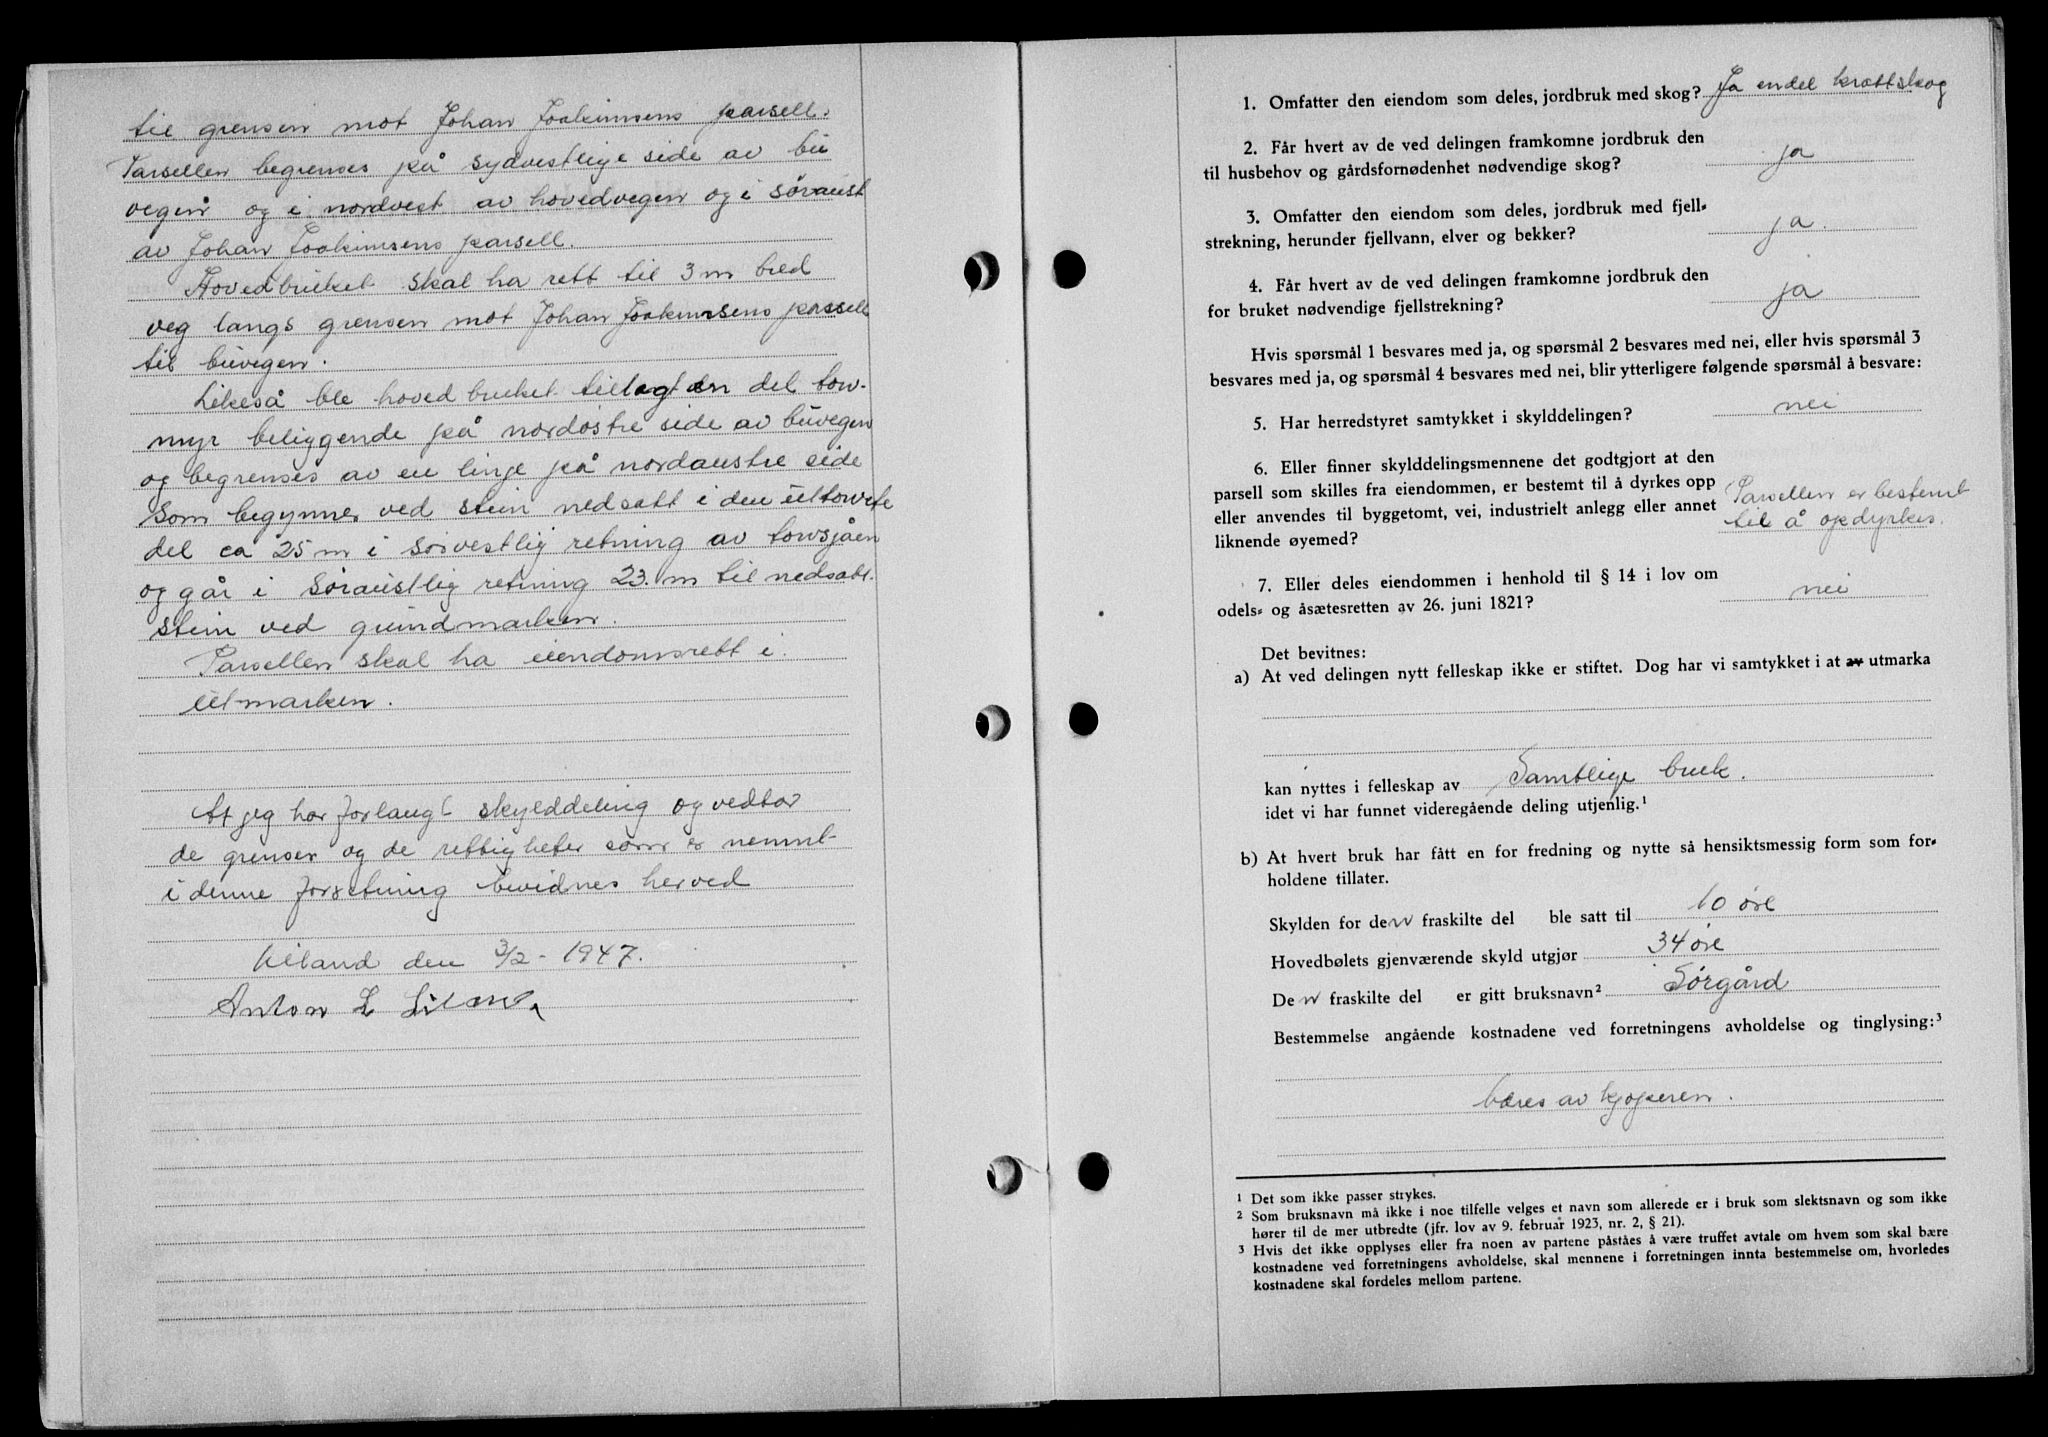 til grensen mot Johan Joakimsens parsell.
Parsellen begrenses på sydvestlige side av bu
vegen og i nordvest av hovedvegen og i søraust
av Johan Joakimsens parsell.
Hovedbruket skal ha rett til 3 m bred
veg langs grensen mot Johan Joakimsens parsell
til buvegen.
Likeså ble hovedbruket tillagt en del torv-
myr beliggende på nordøstre side av buvegen
og begrenses av en linje på nordaustre side
som begynner ved stein nedsatt i den uttorvete
del ca 25 m i sørvestlig retning av torvsjåen
og går i søraustlig retning 23. m til nedsatt.
stein ved grindmarken.
Parsellen skal ha eiendomsrett i
utmarken.
At jeg har forlangt skylddeling og vedtar
de grenser og de rettigheter som er nevnt
i denne forretning bevidnes herved
den 3/2 - 1947.
Anton L
1. Omfatter den eiendom som deles, jordbruk med skog? Ja endel krattskog
2. Får hvert av de ved delingen framkomne jordbruk den
til husbehov og gårdsfornødenhet nødvendige skog? ja
3. Omfatter den eiendom som deles, jordbruk med fjell-
strekning, herunder fjellvann, elver og bekker? ja.
4. Får hvert av de ved delingen framkomne jordbruk den
for bruket nødvendige fjellstrekning? ja
Hvis spørsmål 1 besvares med ja, og spørsmål 2 besvares med nei, eller hvis spørsmål 3
besvares med ja, og spørsmål 4 besvares med nei, blir ytterligere følgende spørsmål å besvare:
5. Har herredstyret samtykket i skylddelingen? nei
6. Eller finner skylddelingsmennene det godtgjort at den
parsell som skilles fra eiendommen, er bestemt til å dyrkes opp
eller anvendes til byggetomt, vei, industrielt anlegg eller annet
liknende øyemed? Parsellen er bestemt
til å opdyrkes.
7. Eller deles eiendommen i henhold til § 14 i lov om
odels- og åsætesretten av 26. juni 1821? nei
Det bevitnes:
a) At ved delingen nytt felleskap ikke er stiftet. Dog har vi samtykket i at av utmarka
kan nyttes i felleskap av Samtlige bruk.
idet vi har funnet videregående deling utjenlig.¹
b) At hvert bruk har fått en for fredning og nytte så hensiktsmessig form som for-
holdene tillater.
Skylden for den fraskilte del ble satt til 10 øre
Hovedbølets gjenværende skyld utgjør 34 øre
Den fraskilte del er gitt bruksnavn² Sørgård
Bestemmelse angående kostnadene ved forretningens avholdelse og tinglysing:³
bæres av kjøperen.
¹ Det som ikke passer strykes.
² Som bruksnavn må ikke i noe tilfelle velges et navn som allerede er i bruk som slektsnavn og som ikke
hører til de mer utbredte (jfr. lov av 9. februar 1923, nr. 2, § 21).
³ Hvis det ikke opplyses eller fra noen av partene påståes å være truffet avtale om hvem som skal bære
kostnadene ved forretningens avholdelse, skal mennene i forretningen innta bestemmelse om, hvorledes
kostnadene skal fordeles mellom partene.